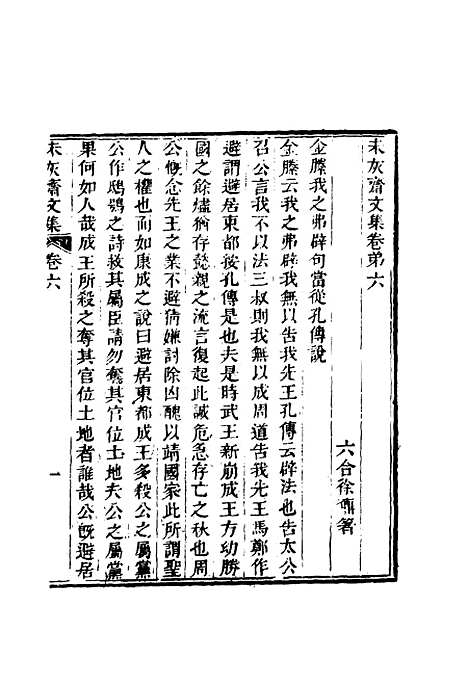 未灰齋文集卷弟六
六合徐鼒箸
金縢我之弗辟句當從孔傳說
金縢云我之弗辟我無以告我先王孔傳云辟法也告太公
召公言我不以法三叔則我無以成周道告我先王馬鄭作
避謂避居東都按孔傳是也夫是時武王新崩成王方幼勝
國之餘燼猶存懿親之流言復起此誠危急存亡之秋也周
公慨念先王之業不避猜嫌討除凶醜以靖國家此所謂聖
人之權也而如康成之說曰避居東都成王多殺公之屬黨
公作鴟鴞之詩救其屬臣請勿奪其官位土地夫公之屬黨
果何如人哉成王所殺之奪其官位土地者誰哉公旣避居
未灰齋文集
卷六
一